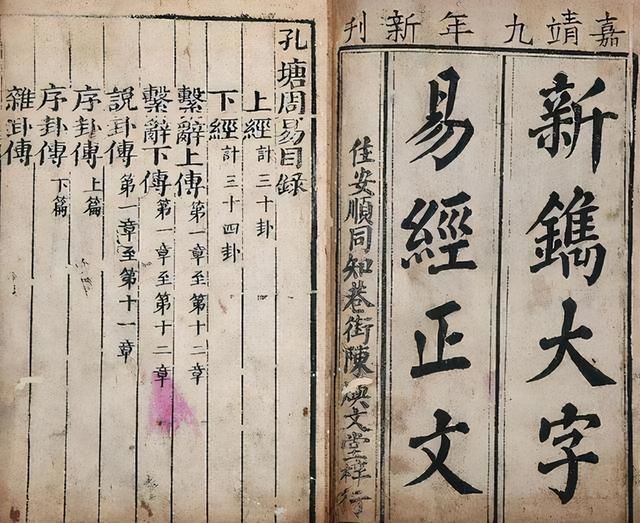 嘉靖九年新刊
新鐫大字
易經正文
佳安順同知巷街陳煥文堂梓行
孔塘周易目錄
上經 計三十卦
下經 計三十四卦
繫辭上傳 第一章至第十二章
繫辭下傳 第一章至第十二章
說卦傳 第一章至第十一章
序卦傳 上篇
序卦傳 下篇
雜卦傳